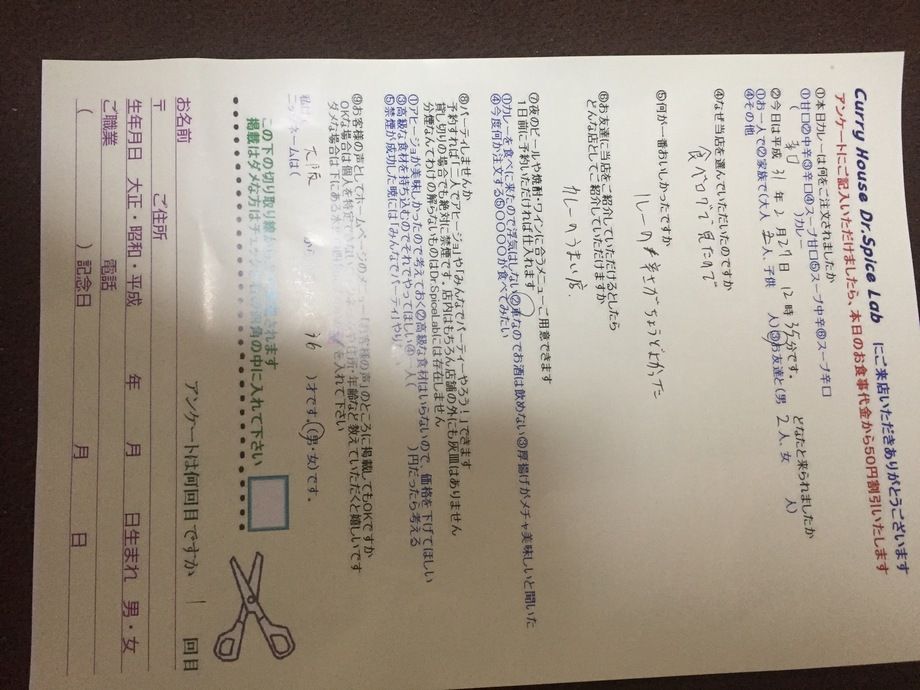 Curry House Dr.Spice Lab にご来店いただきありがとうございます
アンケートにご記入いただけましたら、本日のお食事代金から50円割引いたします
①本日カレーは何をご注文されましたか
①甘口②中辛③辛口④スープ甘口⑤スープ中辛⑥スープ辛口
( 辛口 )カレー
②今日は平成 31 年 2 月 27 日 12 時 35 分です。 どなたと来られましたか
①お一人で②家族で(大人 人、子供 人)③お友達と男 2 人、女 人)
④その他
④なぜ当店を選んでいただいたのですか
食べログで見たので
⑤何が一番おいしかったですか
ルーの辛さがちょうどよかった
⑥お友達に当店をご紹介していただけるとしたら
どんな店としてご紹介していただけますか
カレーのうまい店
⑦夜のビールや焼酎・ワインに合うメニューご用意できます
1日前に予約いただければ仕入れます
①カレーを食べに来たので浮気はしない②車なのでお酒は飲めない③厚揚げがメチャ美味しいと聞いた
④今度何か注文する⑤〇〇〇〇が食べてみたい
⑧パーティしませんか
予約すれば「二人でアヒージョ」や「みんなでパーティーやろう!」できます
貸し切りの場合でも絶対に禁煙です。店内はもちろん店舗の外にも灰皿はありません
分煙なんてわけの解らないものはDr.SpiceLabには存在しません
①アヒージョが美味しかったので考えておく②高級な食材はいらないので、価格を下げてほしい
③高級な食材を持ち込むのでそれでやってほしい④一人( )円だったら考える
⑤禁煙が成功した暁には「みんなでパーティ」やり
⑨お客様の声としてホームページの「お客様の声」のところに掲載してもOKですか
OKな場合は個人を特定 年齢など教えていただくと嬉しいです
ダメな場合は下にある を入れて下さい
私は 大阪 から 36 )才です(男・女)です。
ニックネームは(
この下の切り取り線 されます
掲載はダメな方はチェック 四角の中に入れて下さい
アンケートは何回目ですか 1 回目
お名前
〒 ご住所
生年月日 大正・昭和・平成 年 月 日生まれ 男・女
ご職業 電話
( ) 記念日 月 日